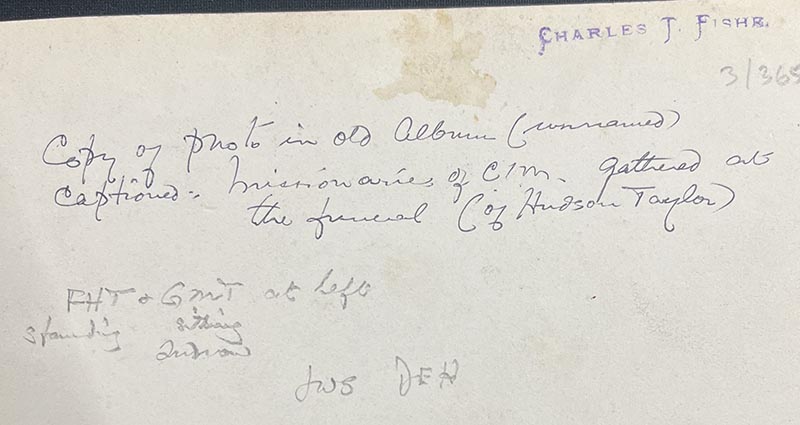 CHARLES T. FISHE.
3/365
Copy of photo in old album (unnamed)
captioned:- Missionaries of CIM. gathered at
the funeral (of Hudson Taylor)
FHT & GMT at left
standing sitting
2nd row
JWS DEH